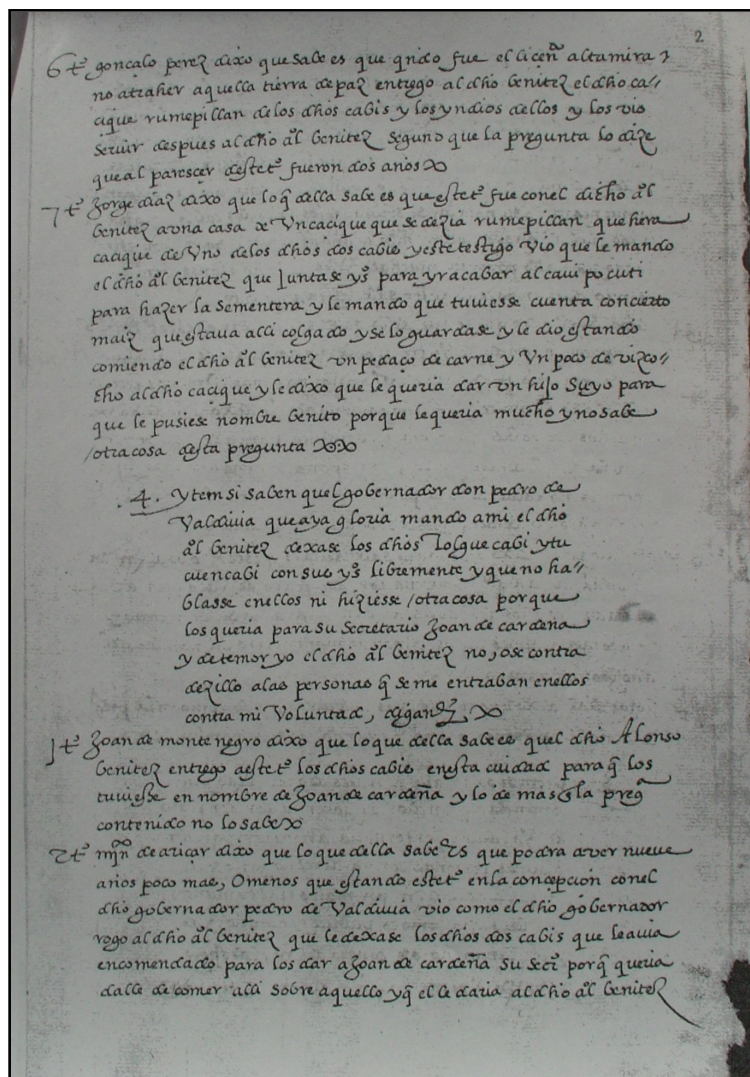 2
6 tº gonçalo perez dixo que sabe es que qndo fue el licenº altamirano
no atraher aquella tierra de paz entrego al dho benitez el dho ca//
cique rumepillan de los dhos cabis y los yndios dellos y los vio
seruir despues al dho aº benitez segund que la pregunta lo dize
que al parescer deste tº fueron dos años
7 tº Joorge diaz dixo que lo q della sabe es que este tº fue con el dicho aº
benitez a vna casa de Vn cacique que se dezia rumepillan que hera
cacique de Vno de los dhos dos cabis y este testigo vio que le mando
el dho aº benitez que Juntase ysº para yr acabar al caui pocuti
para hazer la sementera y le mando que tuuiesse cuenta con cierto
maiz que estaua alli colgado y se lo guardase y le dio estando
comiendo el dho aº benitez vn pedaço de carne y Vn poco de vizco//
cho al dho cacique y le dixo que le queria dar vn hijo suyo para
que le pusiese nombre benito porque le queria mucho y no sabe
/otra cosa desta pregunta
.4. ytem si saben quel gobernador don pedro de
Valdiuia que aya gloria mando a mi el dho
aº benitez dexase los dhos Tolgue cabi y tu
cuencabi con sus ysº libremente y que no ha//
blasse en ellos ni hiziesse /otra cosa porque
los queria para su secretario Joan de cardeña
y de temor yo el dho aº benitez no ose contra
dezillo a las personas q se me entraban en ellos
contra mi Voluntad, digan
1 tº Joan de montenegro dixo que lo que della sabe es quel dho Alonso
benitez entrego a este tº los dhos cabis en esta ciudad para q los
tuuiesse en nombre de Joan de cardeña y lo de mas la pregª
contenido no lo sabe
2 tº mjn de ariçar dixo que lo que della sabe es que podra aver nueue
años poco mas, O menos que estando este tº en la concepcion con el
dho gobernador pedro de Valdiuia vio como el dho gobernador
rogo al dho aº benitez que le dexase los dhos dos cabis que le auia
encomendado para los dar a Joan de cardeña su secº porq queria
dalle de comer alli sobre aquello y q el le daria al dho aº benitez